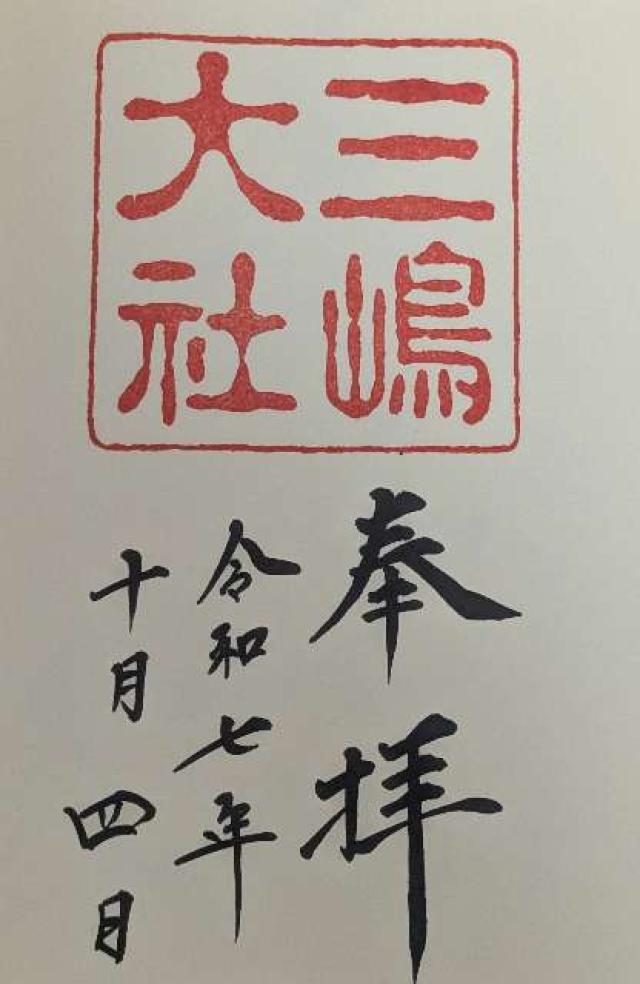 三嶋
大社
奉拝
令和七年
十月四日